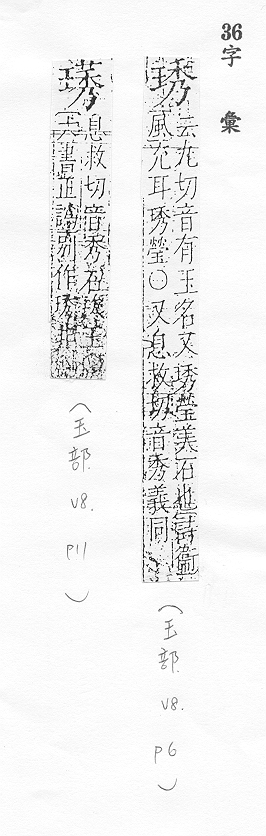 36字 彙
琇 云九切音有玉名又琇瑩美石也詩衞
風充耳琇瑩○又息救切音秀義同
(玉部 v8. p6)
息救切音秀石次玉
別作琇
(玉部 v8. p11)